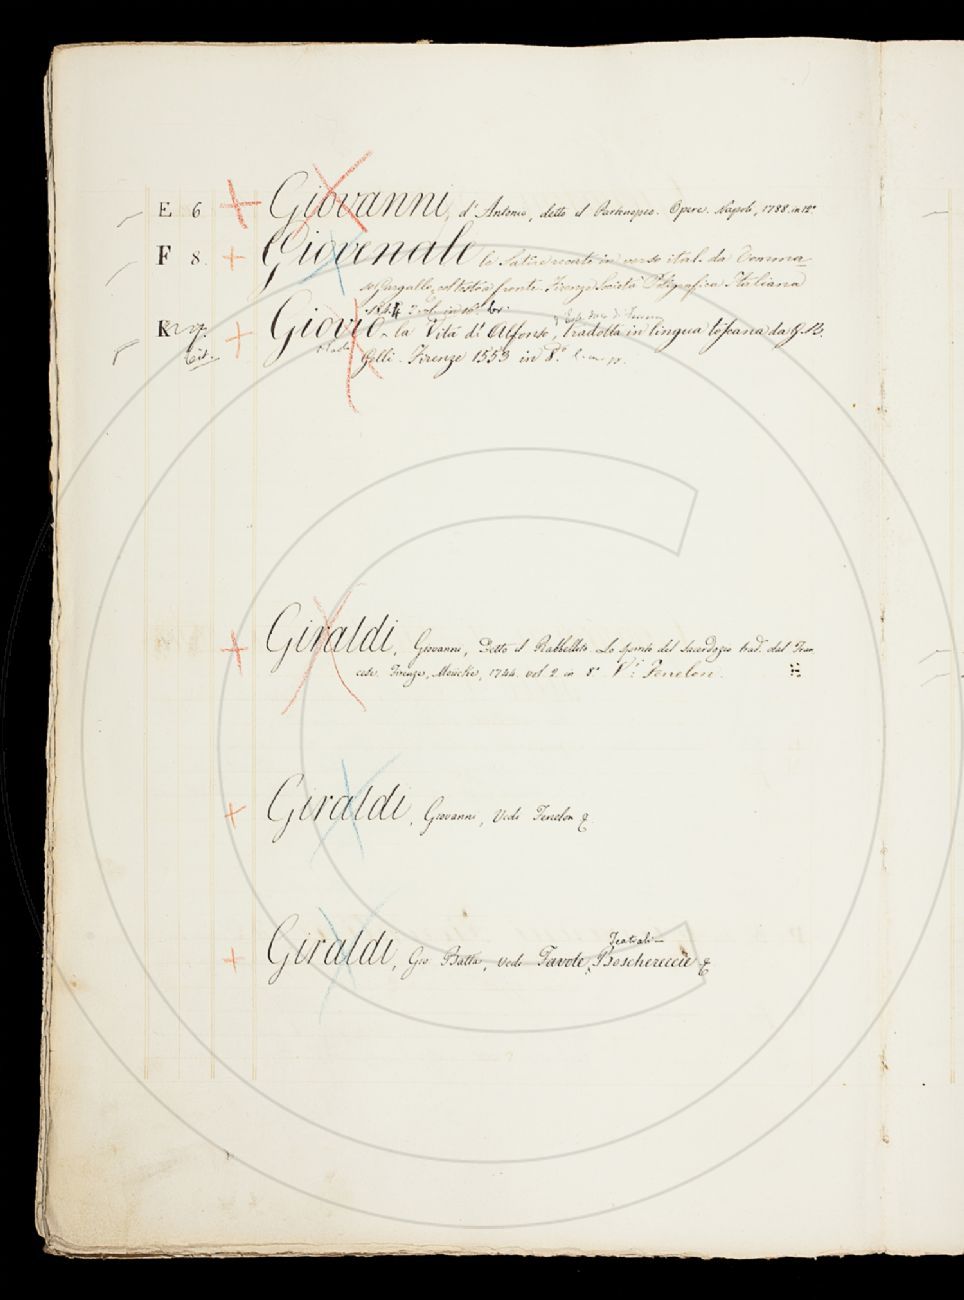 E 6 Giovanni, d'Antonio, detto il Partenopeo. Opere. Napoli, 1788. in 12º
F 8. Giovenale le Satire recate in verso ital. da Tomma-
so Gargallo, col testo a fronte. Firenze Società Poligrafica Italiana
1844 2 vol. in 16º
Duca di Ferrara
K Giovio - la Vita di Alfonso, tradotta in lingua toscana da G. B.
Cit. Paolo Gelli. Firenze 1553 in 8.º
Giraldi, Giovanni, Detto il Rabbellito. Lo spirito del Sacerdozio trad. dal Fran-
cese. Firenze, Moücke, 1744. vol. 2. in 8º V.i Fenelon.
Giraldi, Giovanni, Vedi Fenelon &
Teatrali
Giraldi, Gio Batta, vedi Favole, Boschereccie &